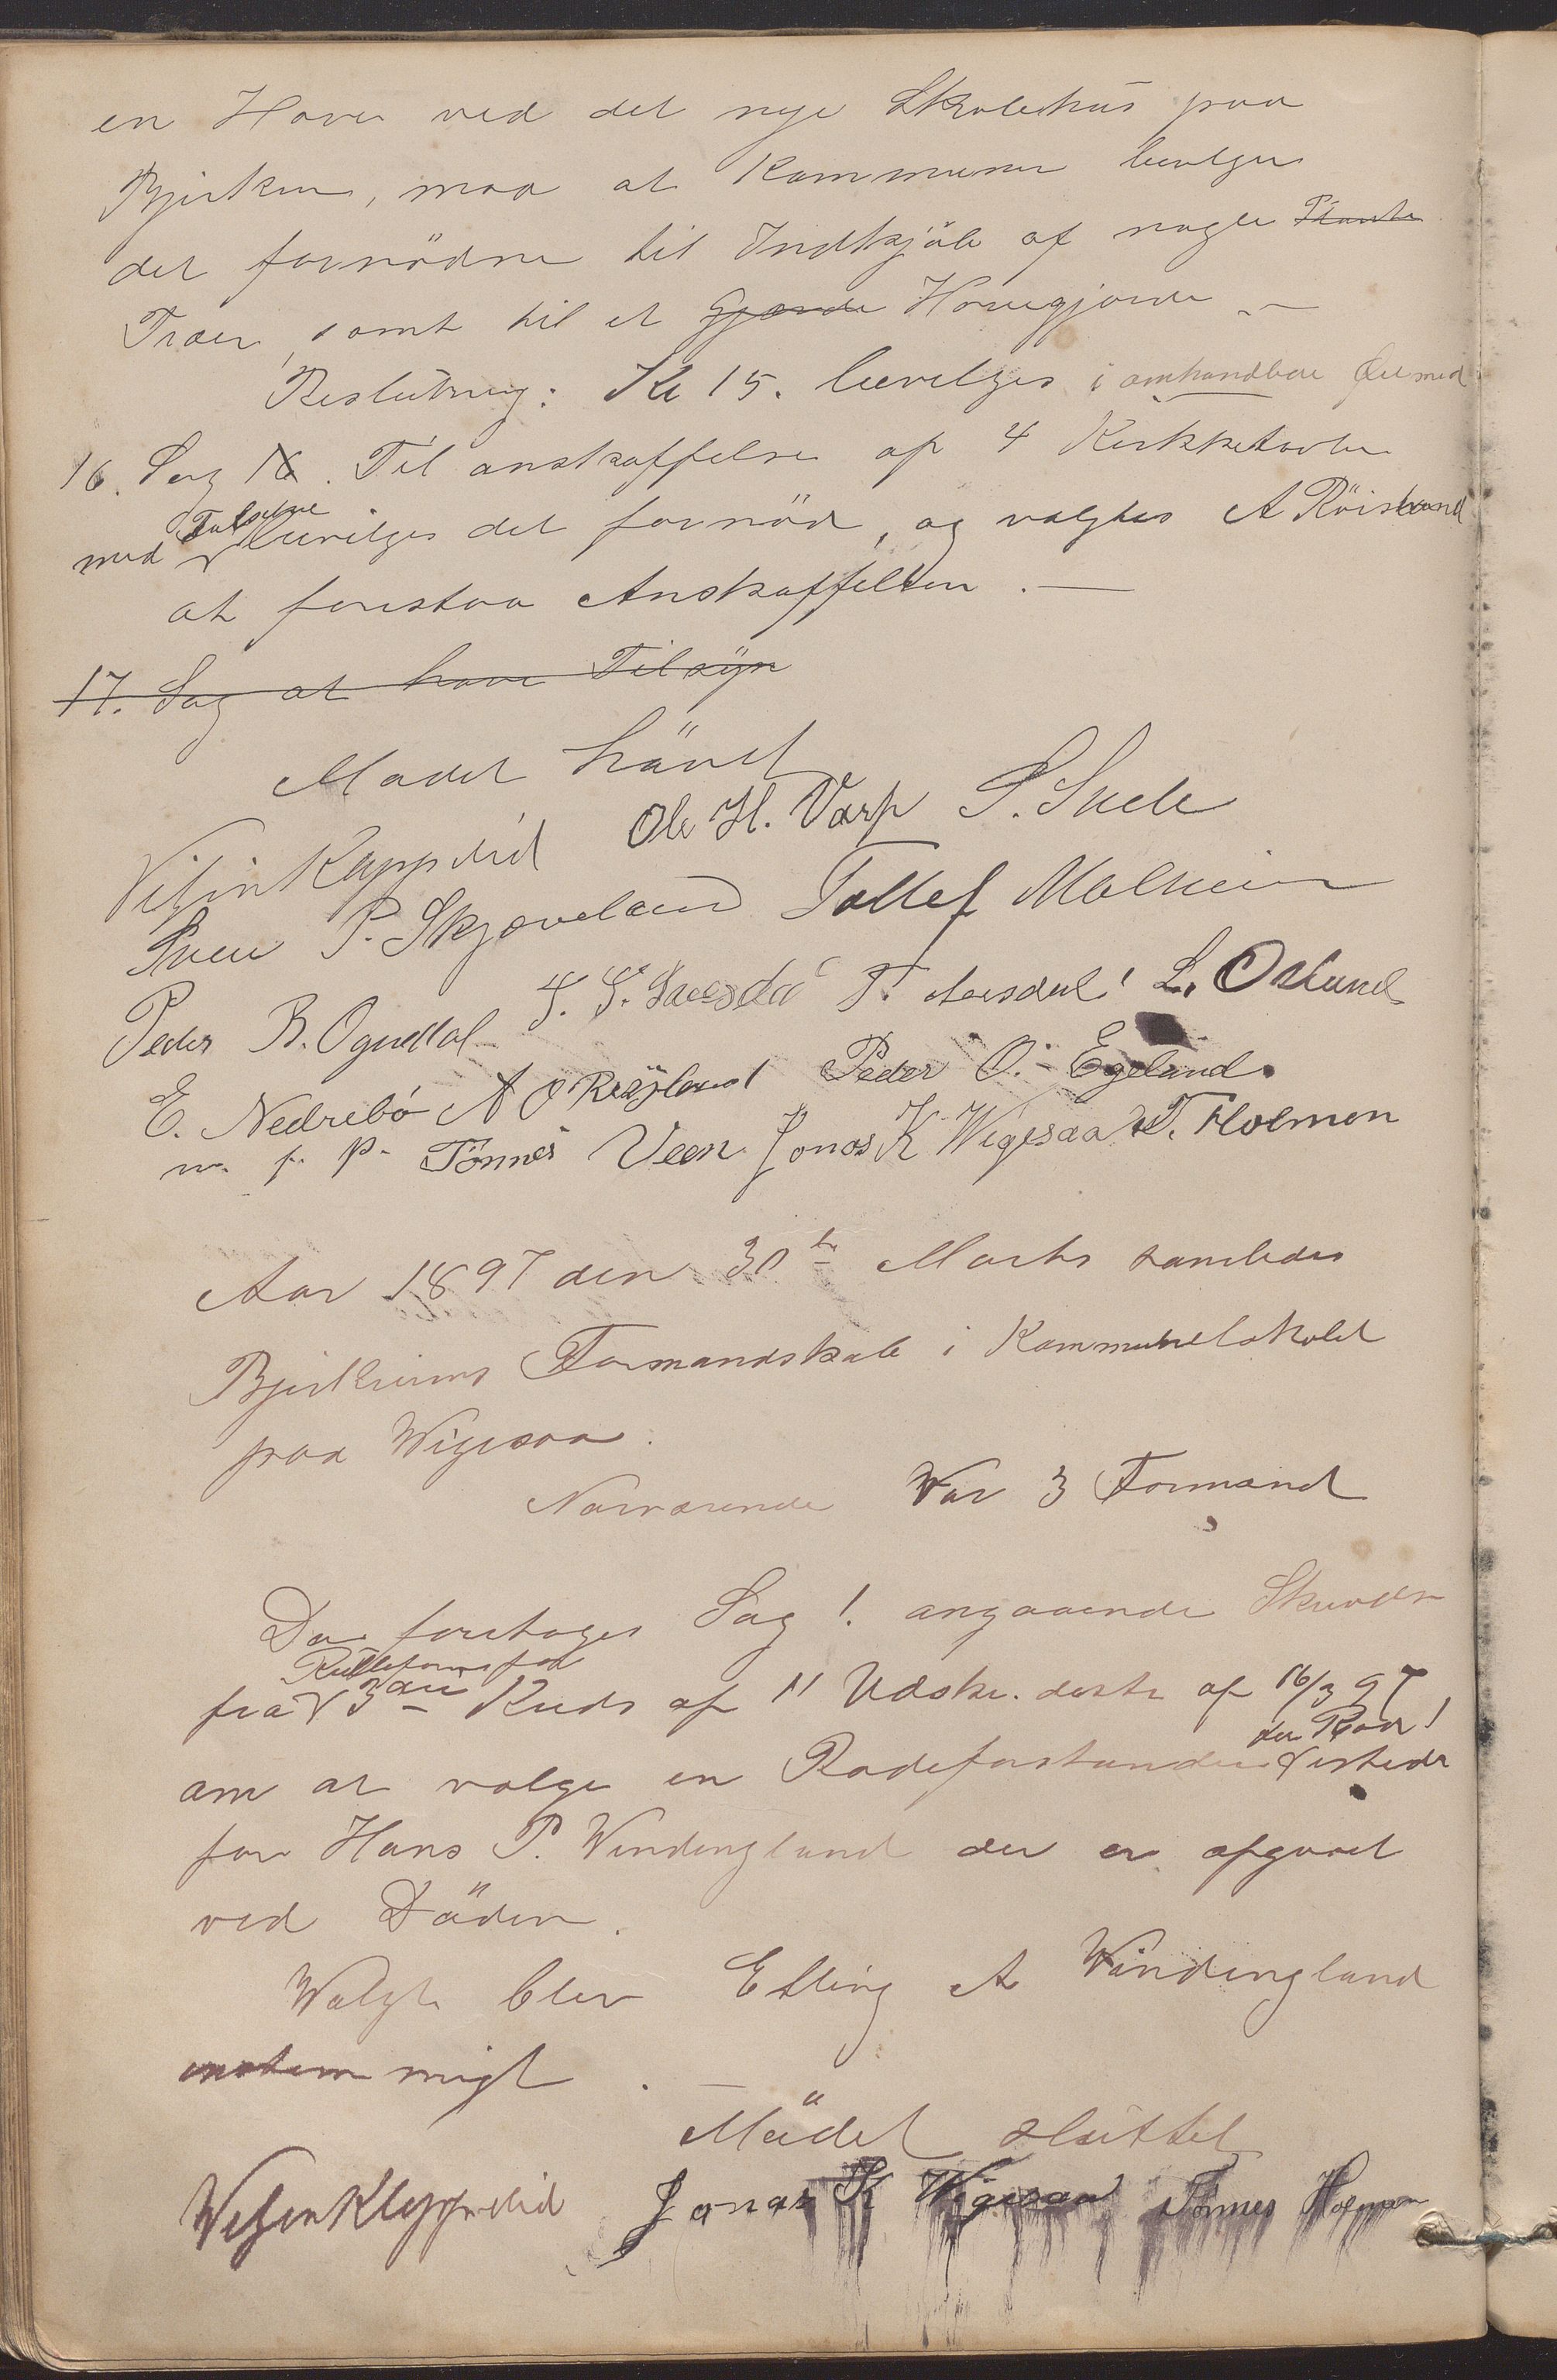 en Have ved det nye Skolehus paa
Bjerkreim, mod at Kommunen bevilger
det fornödne til Indkjöb af nogle Planter
Træer, samt til et Gjærde Havegjærde —
Beslutning: Kr 15. bevilges i omhandlede Öiemed
16. Sag 16. Til anskaffelse af 4 Kirketavler
med Tilbehør bevilges det fornød, og valgtes A Röisland
at forestaa Anskaffelsen. —
17. Sag at have Tilsyn
Mødet hævet
Ole H. Varp S. Svele
Sven P. Skjæveland Tollef Malmein
Peder B. Ognedal T. Aarsdal L. Osland
E. Nedrebö A O Röysland Peder O. Egeland.
m. f. P. Tönnes Veen Jonas K Wigesaa T. Holmen
Aar 1897 den 30te Marts samledes
Bjerkreims Formandskab i Kommunelokalet
paa Wigesaa.
Nærværende Var 3 Formænd
Da foretoges Sag 1. angaaende Skrivelse
fra Rulleförerne for 3die Kreds af 11 Udskr. distr af 16/3 97,
om at vælge en Rodeforstander der Rode! isteden
for Hans P. Vindingland der er afgaaet
ved Döden.
Walgte blev Elling A Windingland
enstemmigt. —
Mödet sluttet
Jonas K Wigesaa Tönnes Holmen